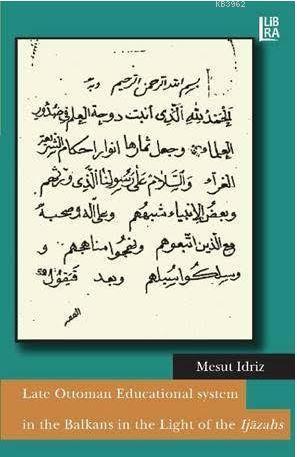 KB3962
LIB
RA
بسم الله الرحمن الرحيم وبه
الحمد لله الذي أنبت دوحة العلم في صدور
العلماء وجعل ثمارها انوار احكام الشريعة
الغراء والسلام على رسولنا الذي
وبعض الانبياء وعلى اله وصحبه
مع الذين اتبعوهم مناهجهم و
وسلكوا سبيلهم وبعد فيقول
الفقير
Mesut Idriz
Late Ottoman Educational system
in the Balkans in the Light of the Ijāzahs